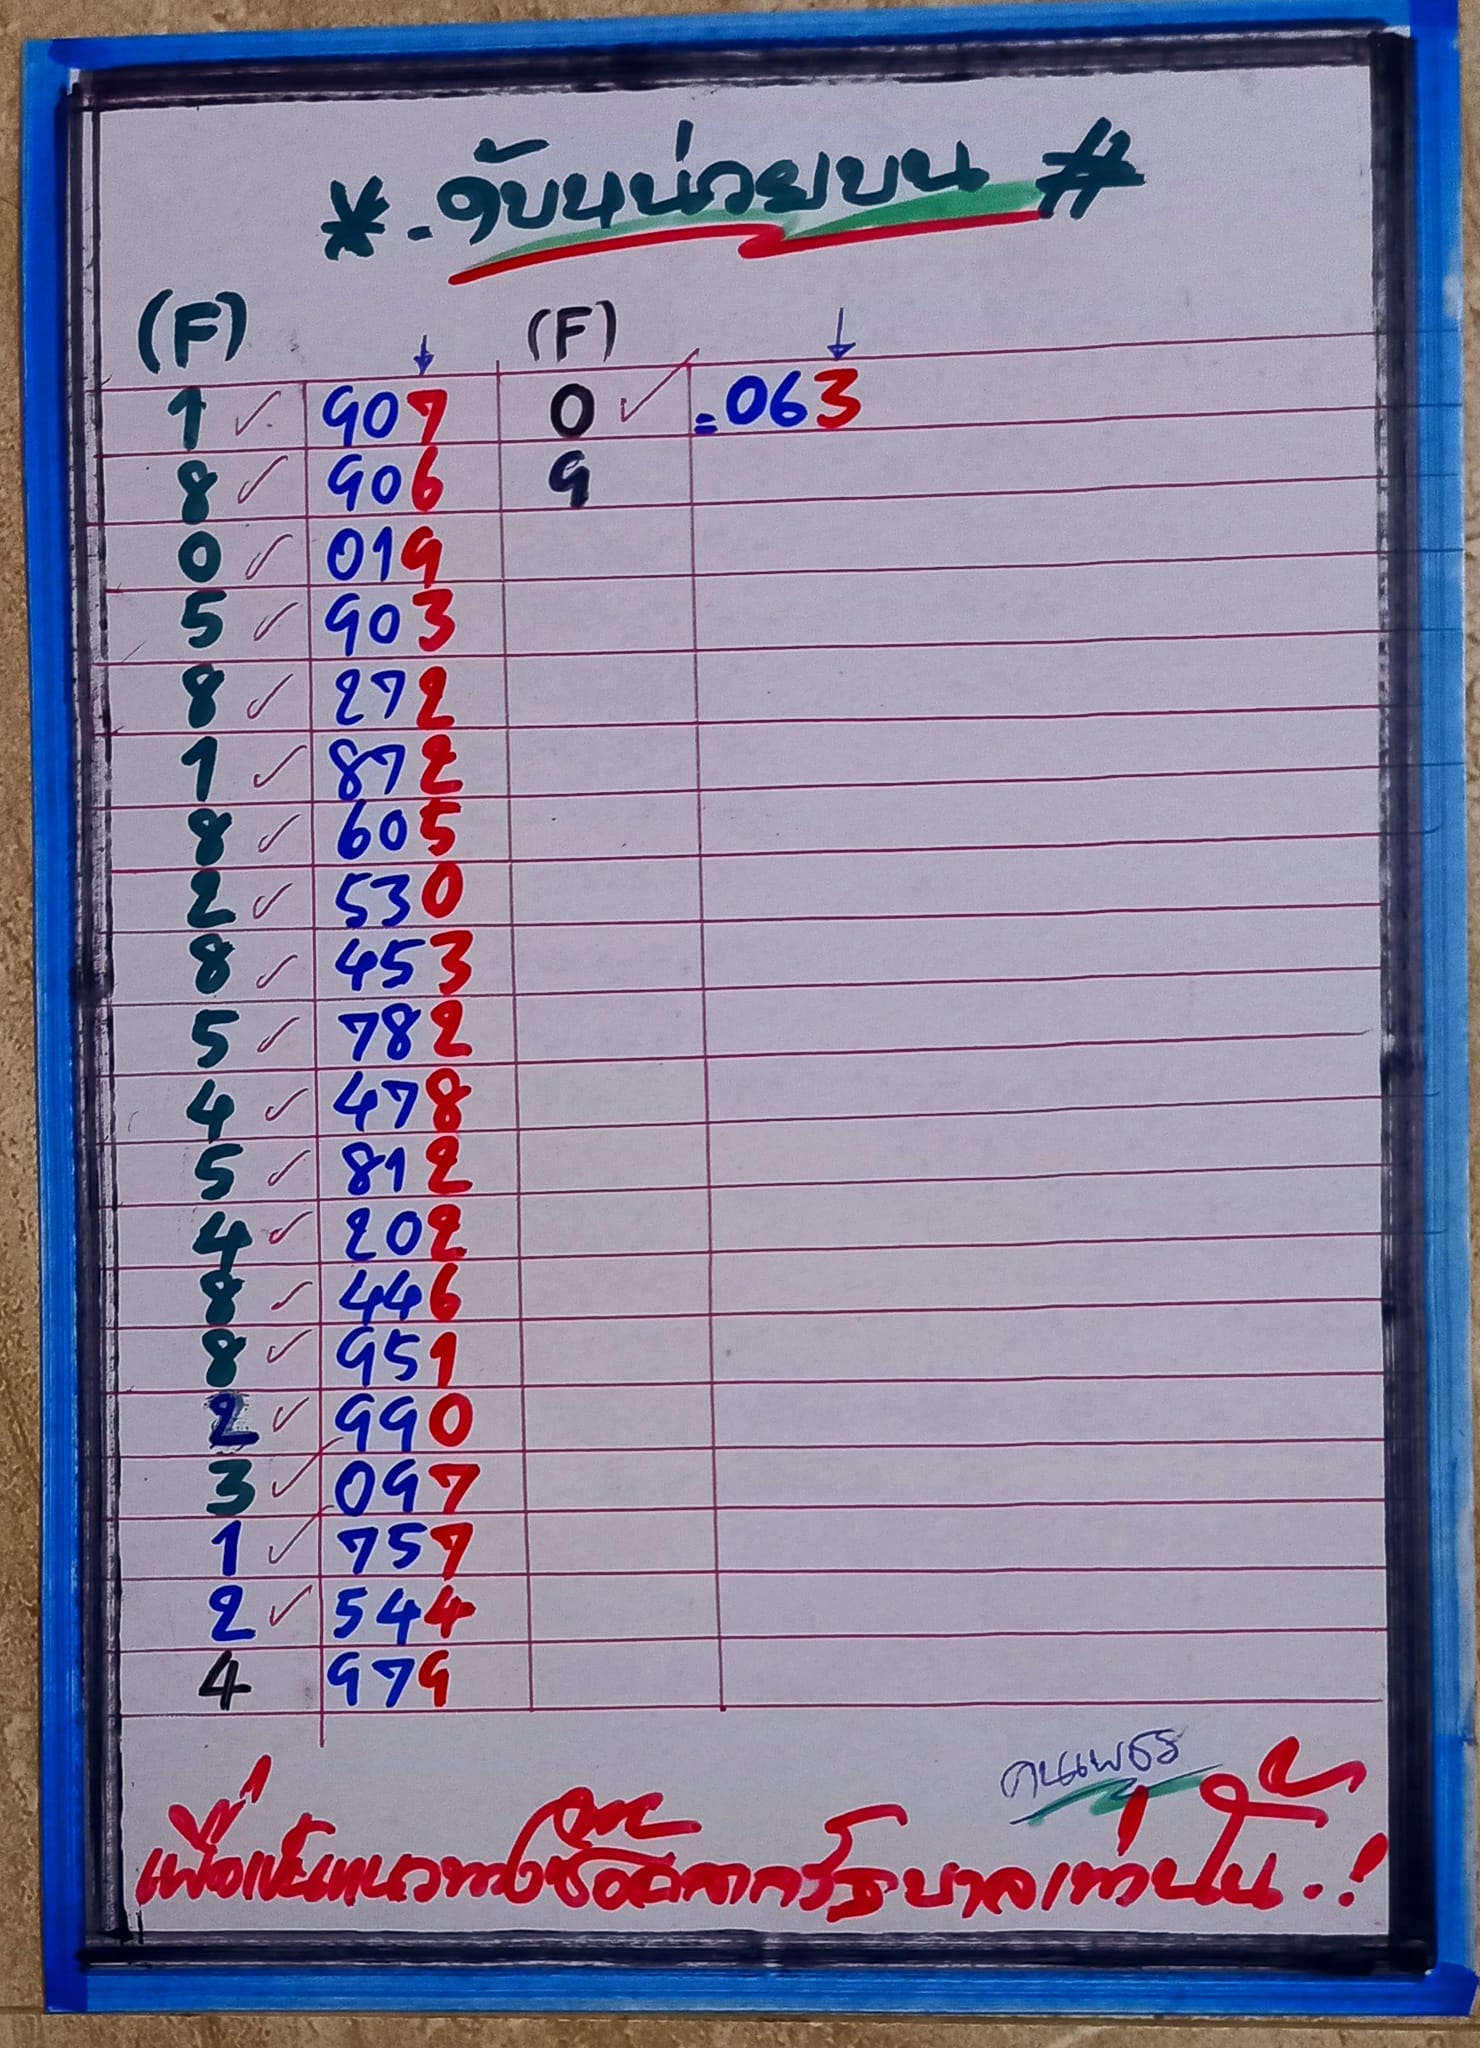 * . ดับหน่วยบน #
(F) (F)
1 ✓ 907 0 ✓ = 063
8 ✓ 906 9
0 ✓ 019
5 ✓ 903
8 ✓ 272
1 ✓ 872
8 ✓ 605
2 ✓ 530
8 ✓ 453
5 ✓ 782
4 ✓ 478
5 ✓ 812
4 ✓ 202
8 ✓ 446
8 ✓ 951
2 ✓ 990
3 ✓ 097
1 ✓ 757
2 ✓ 544
4 979
เพื่อเป็นแนวทางซื้อสลากรัฐบาลเท่านั้น.!